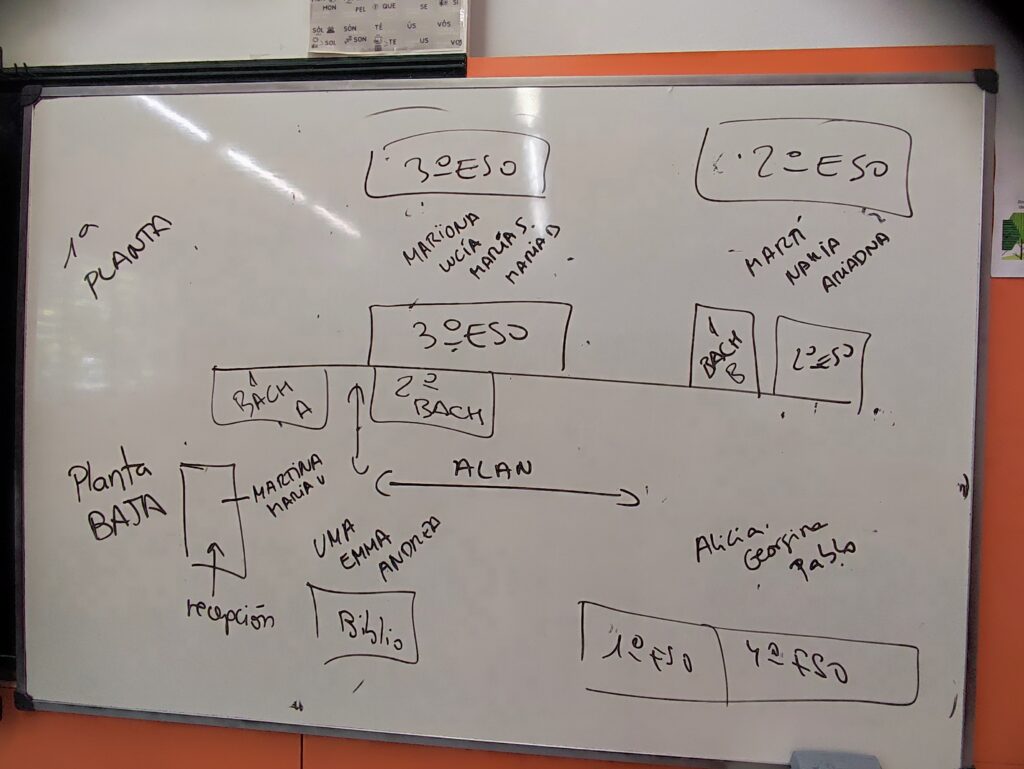 MON PEL QUE SE SI
SÓL SÓN TÉ ÚS VÓS
SOL SON TE US VOS
3º ESO
2º ESO
1ª
PLANTA
MARIONA
LUCÍA
MARÍA S.
MARIA D
MARTÍ
NAHIA
ARIADNA
3º ESO
1
BACH
B
2º ESO
1
BACH
A
2º
BACH
Planta
BAJA
MARTINA
MARIA V
ALAN
UMA
EMMA
ANDREA
Alicia.
Georgina
Pablo
recepción
Biblio
1º ESO
4º ESO